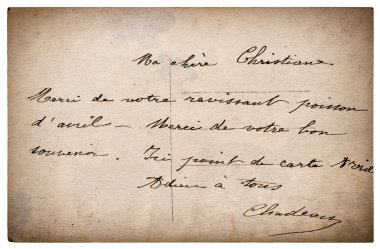 Ma chère Christiane.
Merci de votre ravissant poisson
d'avril — Merci de votre bon
souvenir. Ici point de carte Avril
Adieu à tous